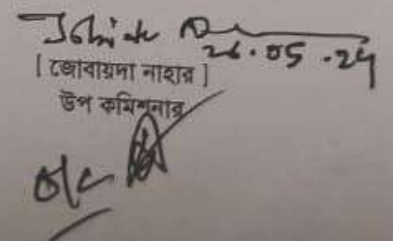 26.05.24
[ জোবায়দা নাহার ]
উপ কমিশনার
o/c